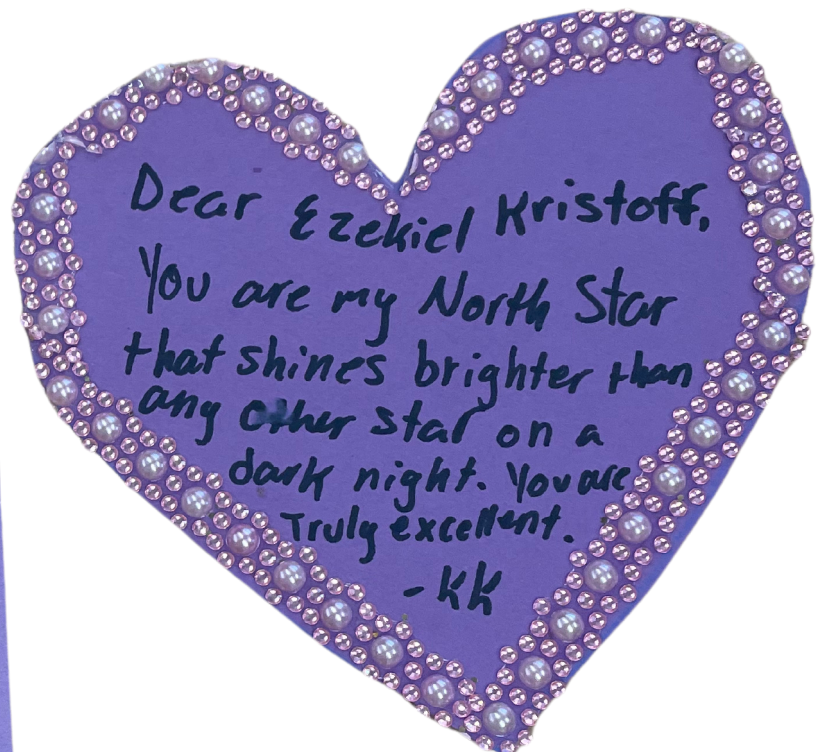 Dear Ezekiel Kristoff,
You are my North Star
that shines brighter than
any other star on a
dark night. You are
Truly excellent.
-KK